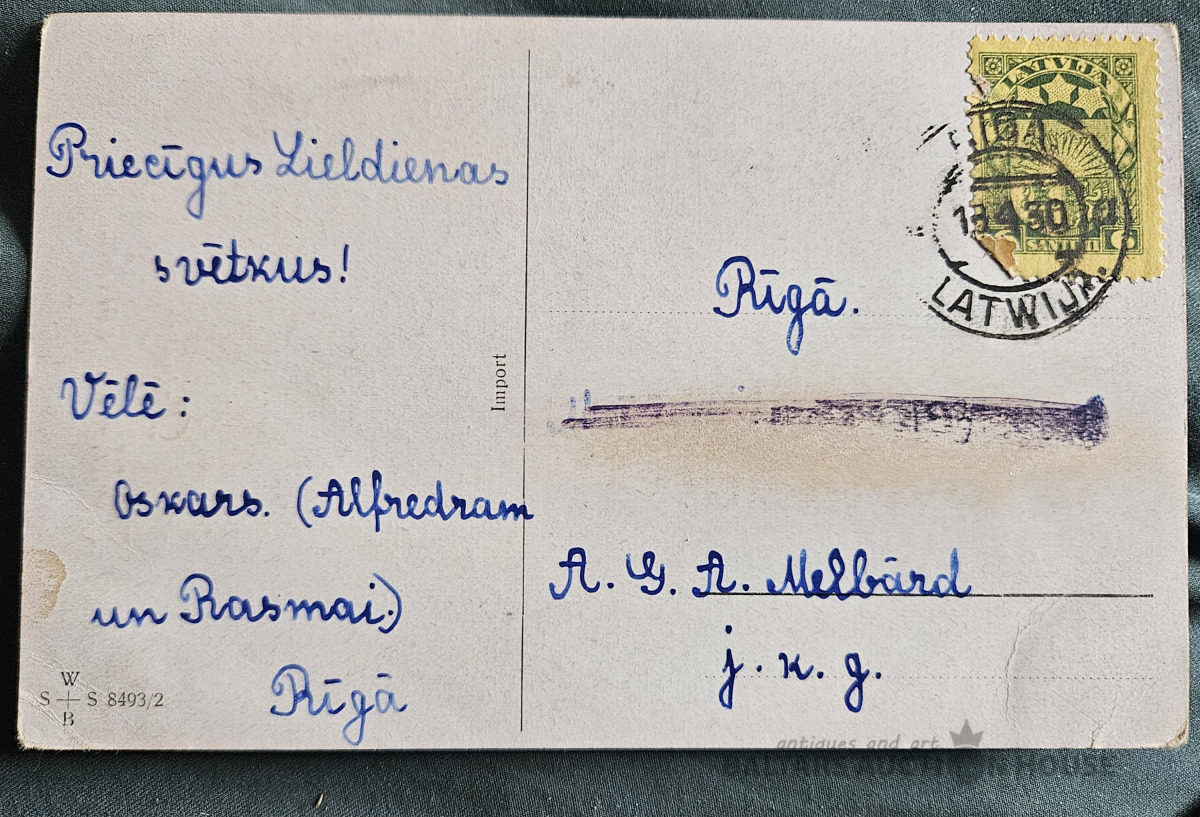 Priecīgus Lieldienas
svētkus!
Vēlē:
Oskars. (Alfredram
un Rasmai.)
Rīgā
W
S S 8493/2
B
Import
LATVIJA
SANTIMI
RIGA
13 4 30
LATWIJA
Rīgā.
A. G. A. Melbārd
j. k. g.
antiques and art
AUCTION HOUSE